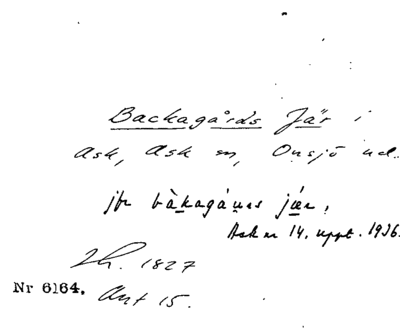 Backagårds Jär i
Ask, Ask sn, Onsjö hd.
jfr bàkagá jär,
Ask sn 14. uppt. 1936.
Lh. 1827
Nr 6164. Ant 15.